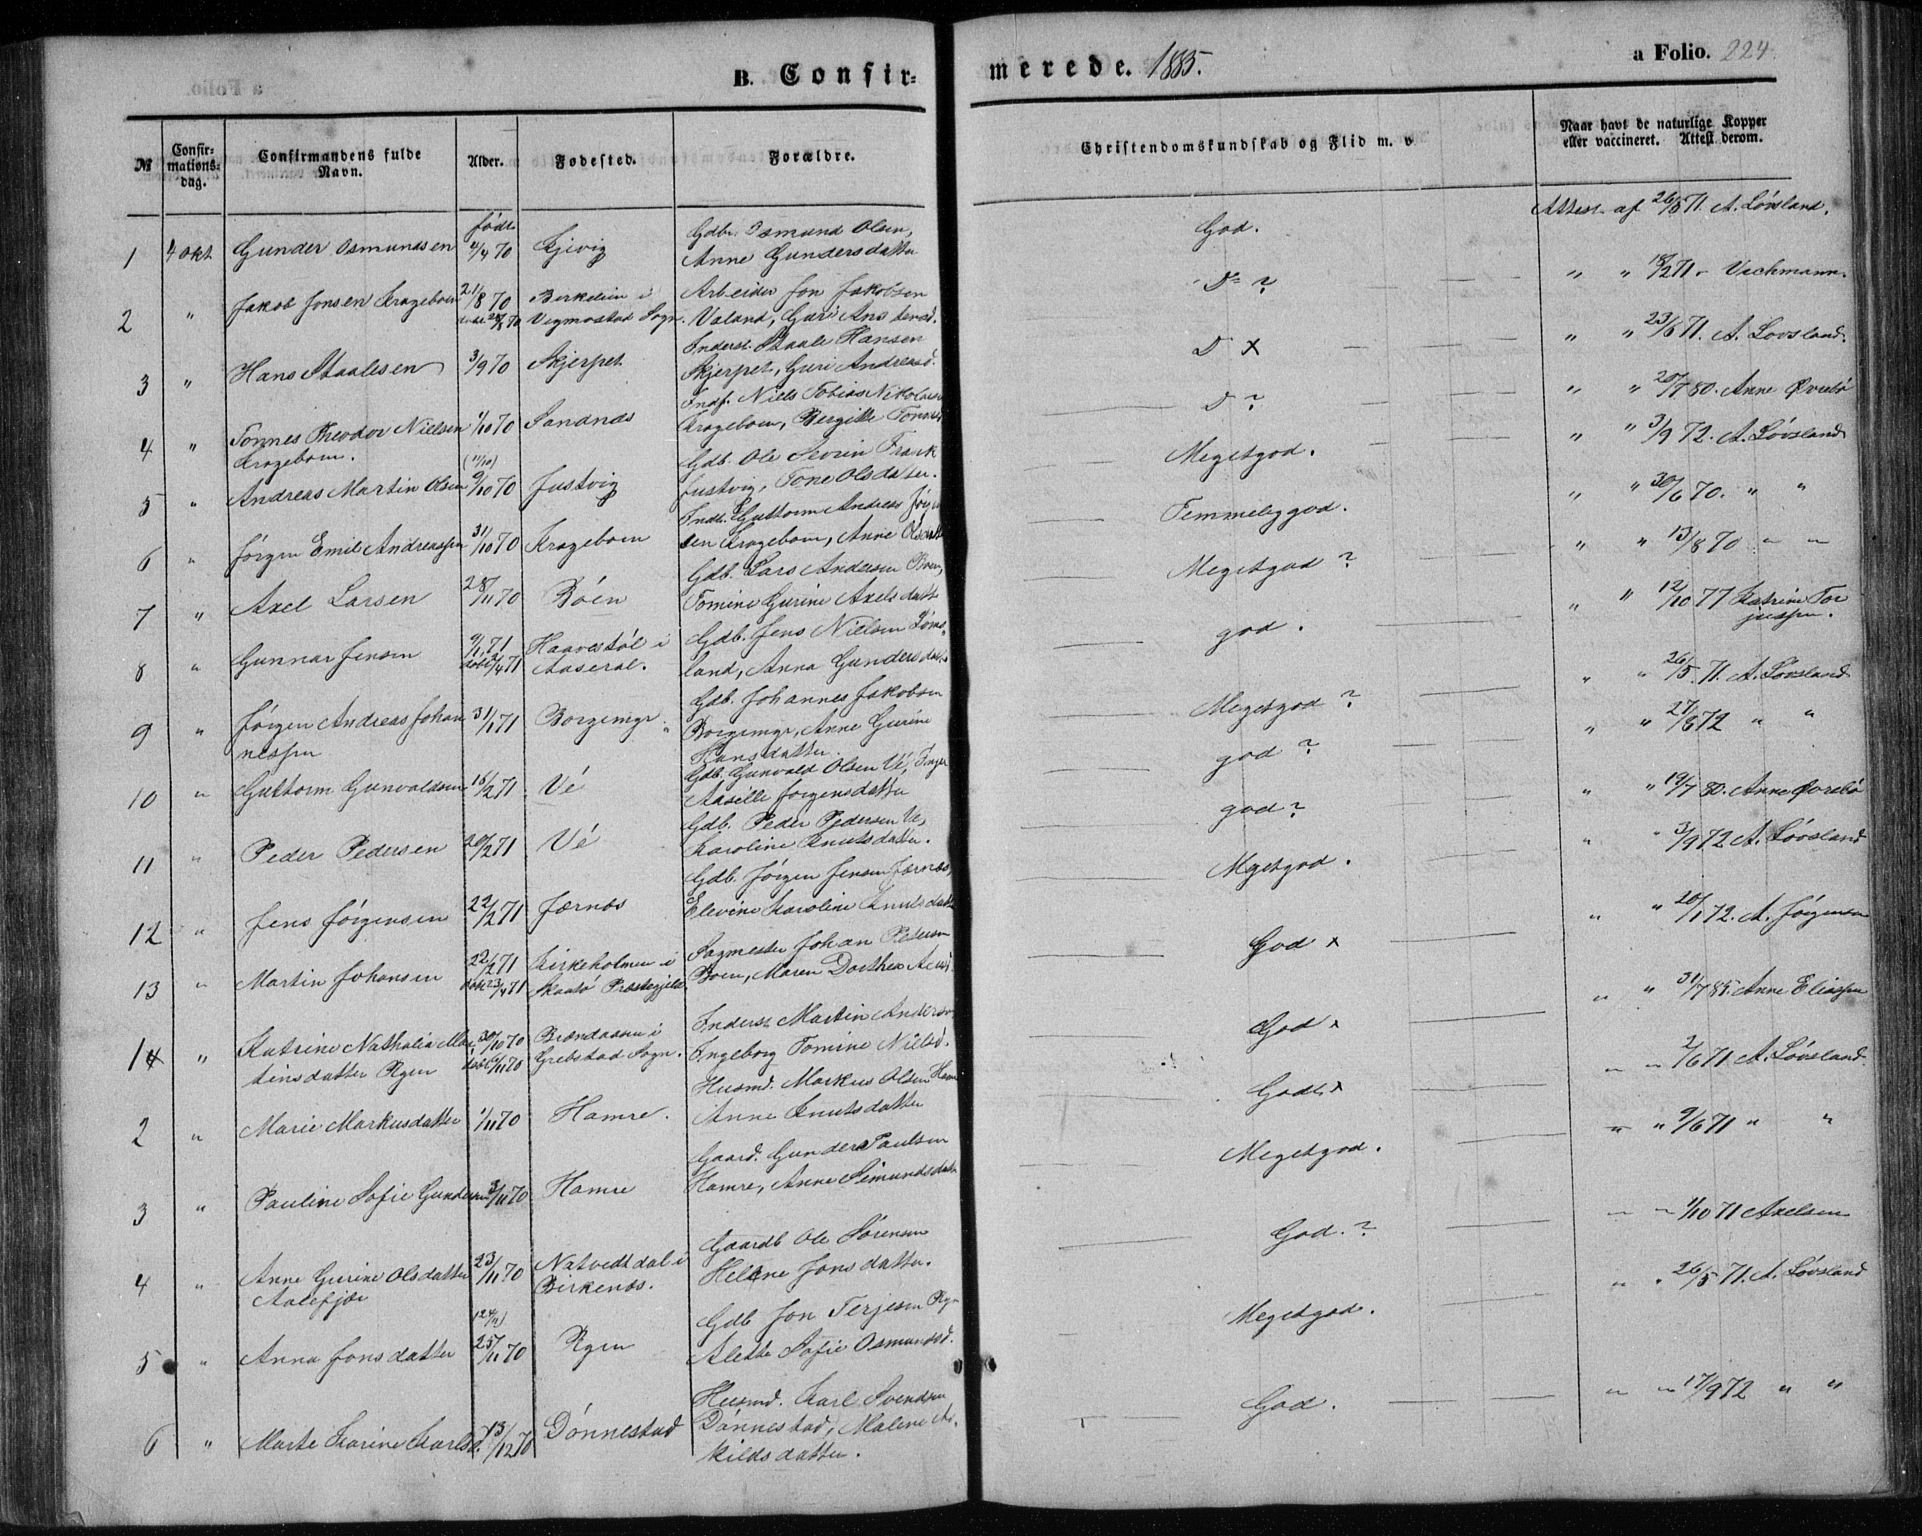 B. Confir=
merede. 1885.
a Folio. 224
№
Confir-
mations-
dag.
Confirmandens fulde
Navn.
Alder.
Fødested.
Forældre.
Christendomskundskab og Flid m. v
Naar havt de naturlige Kopper
eller vaccineret. Attest derom.
født
1 4 Okt Gunder Osmundsen 4/4 70 Gdbr. Osmund Olsen,
Anne Gundersdatter
God.
Attest af 26/5 71 A. Løvsland.
2 " Jakob Jonsen Krageboen 21/8 70 Birkeleien i Arbeider Jon Jakobsen
Vegmostad Sogn. Valand, Guri
Do ?
" " 18/2 71 - Vachmann
3 " Hans Staalesen 3/9 70 Skjerpet Inderst Staale Hansen
Skjerpet, Guri Andreasd.
D x
" " 23/6 71. A. Løvsland
4 " Tønnes Theodor Nielsen 1/10 70 Sandnes Indf. Niels Tobias
Krageboen. Krageboen, Bergitte
D ?
" " 20/7 80. Anne Øvrebø
(11/10)
5 " Andreas Martin Olsen 9/10 70 Justvig Gdb. Ole Severin
Justvig, Tone Olsdatter.
Megetgod.
" " 3/9 72. A. Løvsland
6 " Jørgen Emil Andreassen 31/10 70 Krageboen Indr. Guttorm Andreas Jørgen
sen Krageboen, Anne
Temmeliggod.
" " 30/6 70. " "
7 " Axel Larsen 28/11 70 Boén Gdb. Lars Andersen Boen,
Tomine Gurine Axelsdatter
Megetgod ?
" " 13/8 70 " "
8 " Gunnar Jensen 9/1 71 Haavestøl i Gdb. Jens Nielsen Løvs-
døbt 2/4 71 Aaseral. land, Anna Gundersdatter
god.
" " 12/10 77 Katrine Tor
jussen.
9 " Jørgen Andreas Johan 31/1 71 Borgemyr Gdb. Johannes Jakobsen
nessen Borgemyr, Anne Gurine
Hansdatter.
Megetgod ?
" " 26/5 71. A. Løvsland
10 " Guttorm Gunvaldsen 16/2 71 Vé Gdb. Gunvald Olsen Vé, Inger
Aasille Jørgensdatter
god ?
" " 27/8 72 " "
11 " Peder Pedersen 20/2 71 Vé Gdb. Peder Pedersen Ve,
Karoline Knutsdatter.
god ?
" " 19/7 80. Anne Øvrebø
12 " Jens Jørgensen 22/2 71 Jærnæs Gdb. Jørgen Jensen Jærnæs,
Elevine Karoline Knutsdatter
Megetgod.
" 3/9 72 A. Løvsland
13 " Martin Johansen 22/2 71 Kirkeholmen i Sagmester Johan Pedersen
døbt 23/4 71 Skaatø Præstegjeld. Boen, Maren Dorthea
God x
" " 20/1 72. A. Jørgensen
1 " Katrine Nathalia Mar 30/10 70 Brændaasen i Inderst Martin Anders
tinsdatter Ryen døbt 6/11 70 Grebstad Sogn. Ingeborg Tomine Nielsd.
God x
" " 31/7 85. Anne Eliassen
2 " Marie Markusdatter 1/11 70 Hamre. Husmd. Markus Olsen Hamre
Anne Knutsdatter
Godt x
" " 2/6 71 A. Løvsland
3 " Pauline Sofie Gundersen 3/11 70 Hamre Gaard. Gunder Paulsen
Hamre, Anne Simundsdatter
Megetgod.
" " 9/6 71 " "
4 " Anne Gurine Olsdatter 23/11 70 Natvedtdal i Gaardb Ole Sørensen
Aalefjær Birkenes. Helene Jonsdatter.
God. ?
" " 1/10 71 Axelsen
(24/11)
5 " Anna Jonsdatter 25/11 70 Ryen Gdb Jon Terjesen Ryen
Alette Sofie Osmundsd.
Megetgod.
" " 26/5 71. A. Løvsland
6 " Marte Karine Karlsd. 13/12 70 Dønnestad Husmd. Karl Svendsen
Dønnestad, Malene As-
kildsdatter.
God.
" " 17/9 72 " "